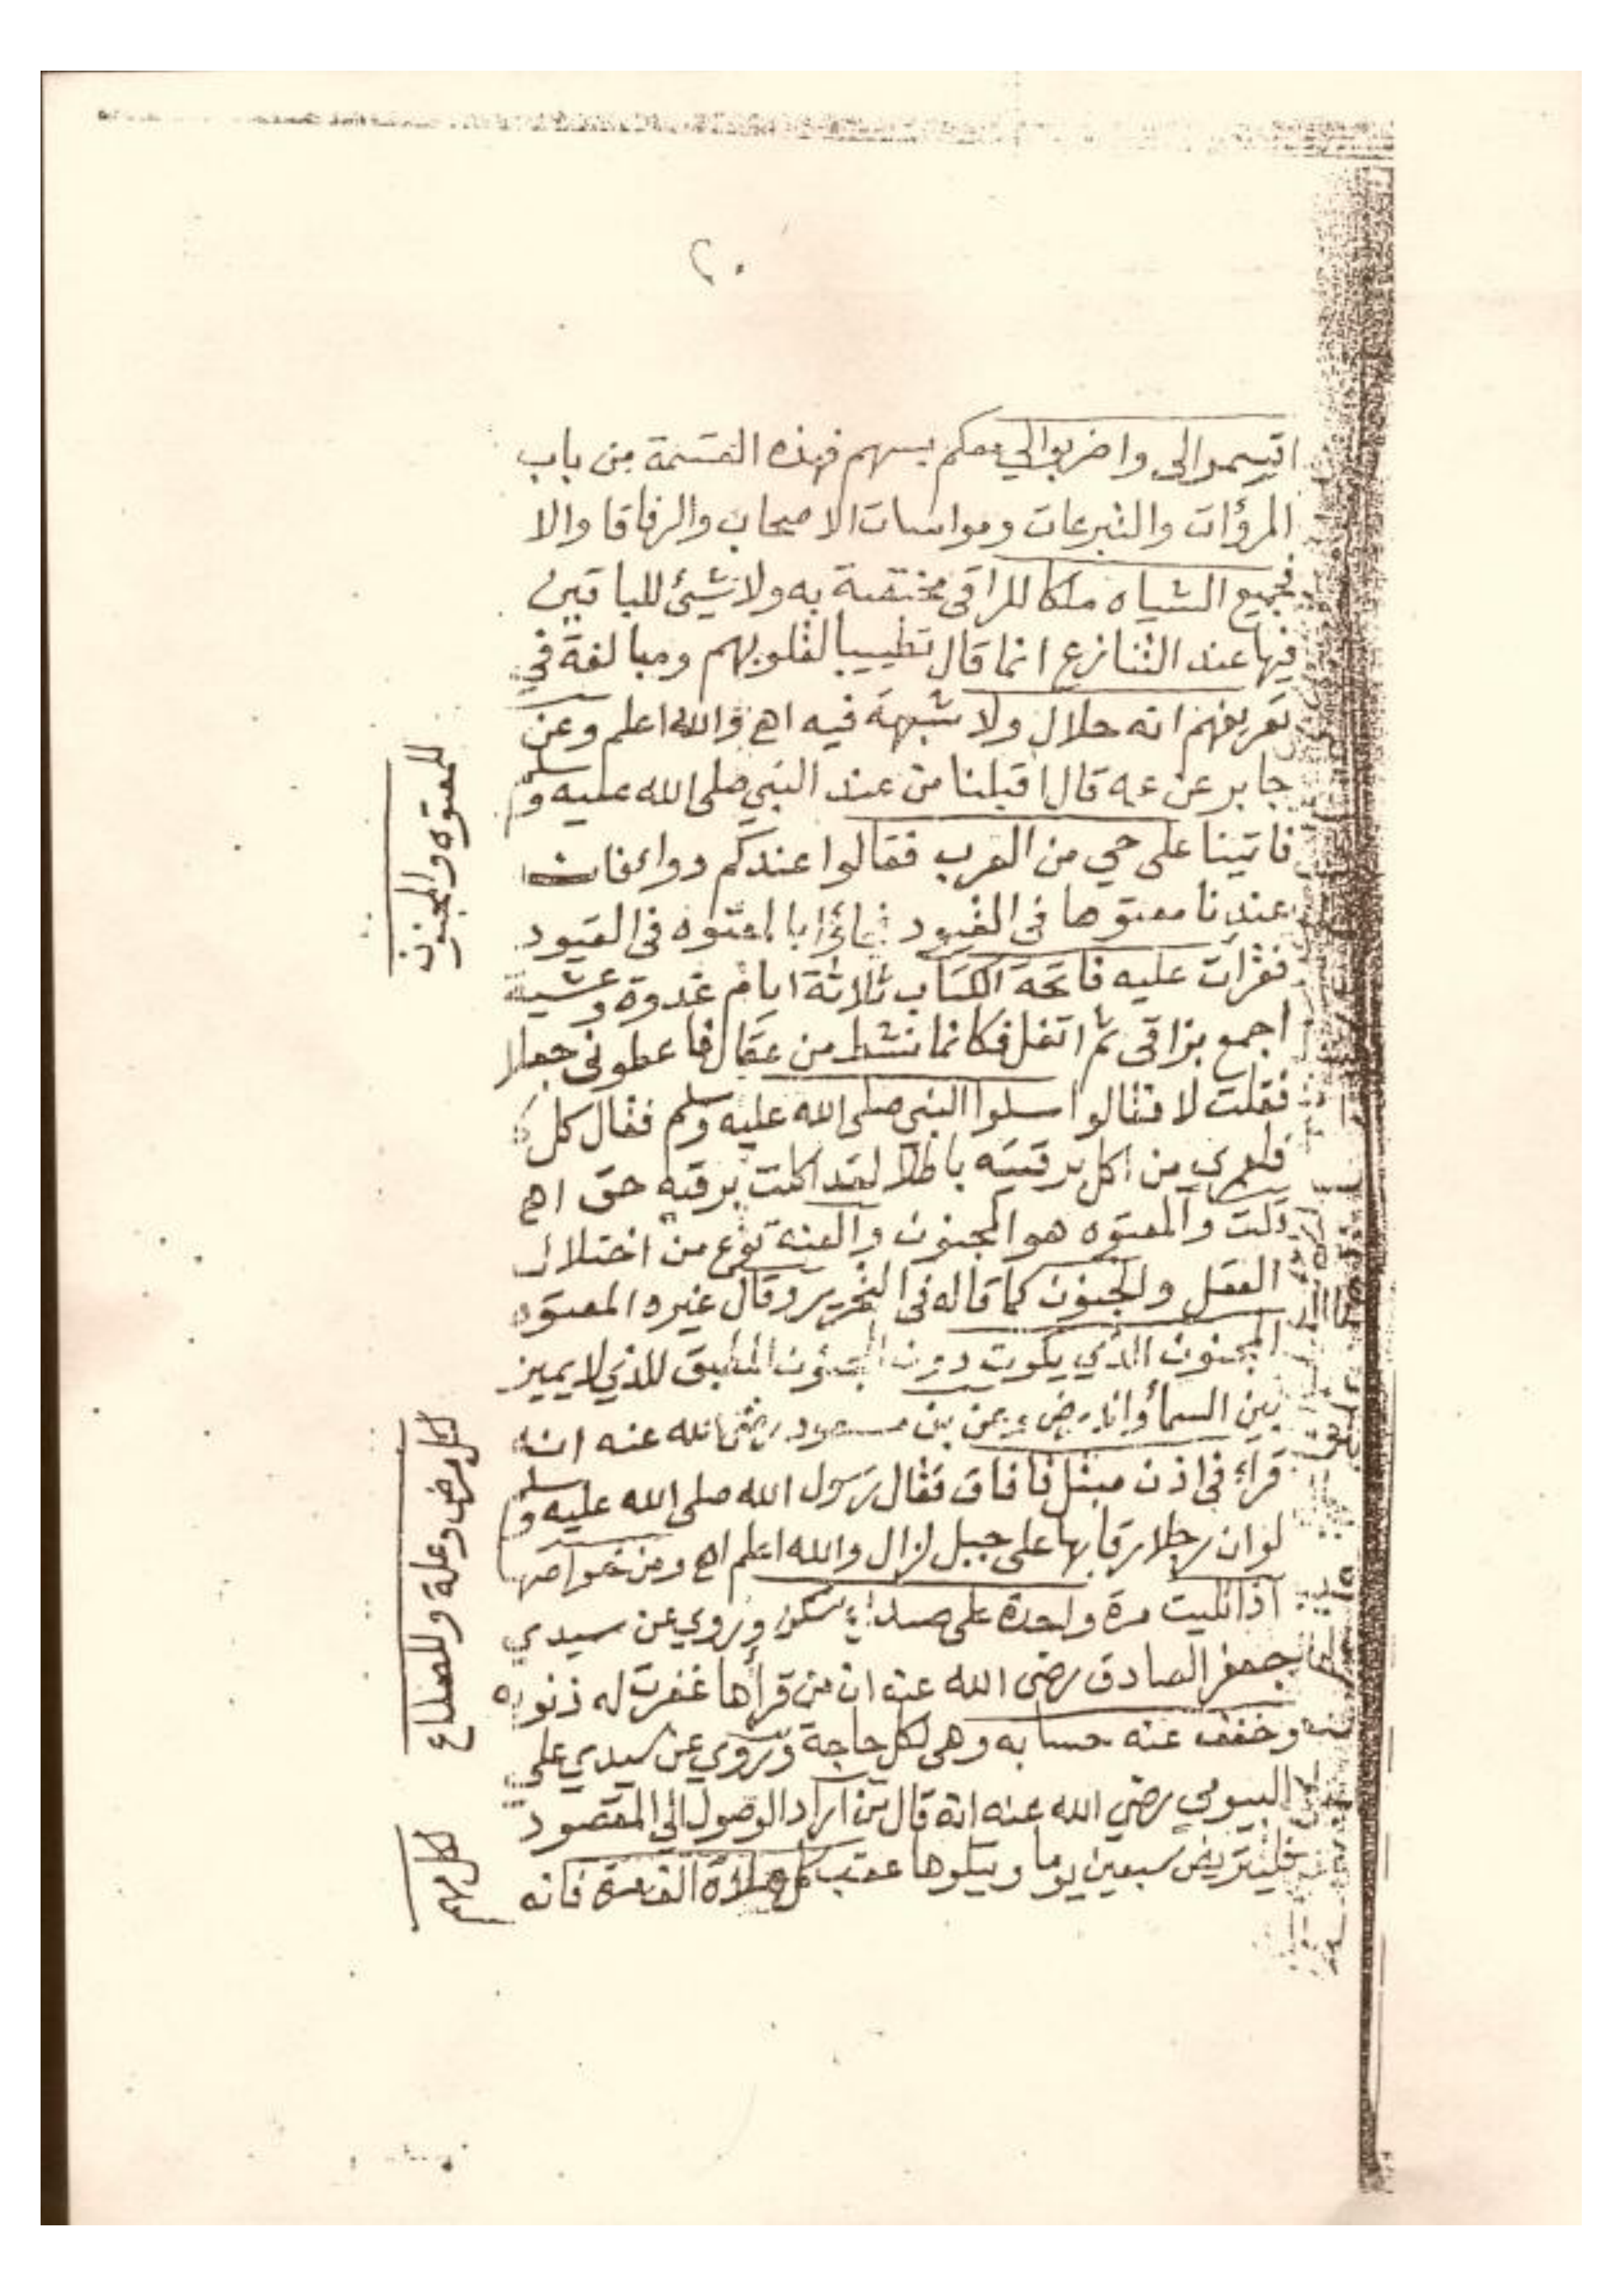 ٢٠
اقسموا لي واضربوا لي معكم بسهم فهذه القسمة من باب
المروٴات والتبرعات ومواسات الاصحاب والرفاقا والا
فجميع الشياه ملكا للراقى مختصة به ولا شيئ للباقين
فيها عند التنازع انما قال تطييبا لقلوبهم ومبالغة في
تعريفهم انه حلال ولا شبهة فيه اهـ والله اعلم وعن
جابر عن عمه قال اقبلنا من عند النبي صلى الله عليه وسلم
فاتينا على حي من العرب فقالوا عندكم دواء فان
عندنا معتوها فى القيود فجاؤا بالمعتوه فى القيود
فقرأت عليه فاتحة الكتاب ثلاثة ايام غدوة وعشية
اجمع بزاقى ثم اتفل فكانما نشط من عقال فاعطونى جعلا
فقلت لا فقالوا سلوا النبي صلى الله عليه وسلم فقال كل
فلعمري من اكل برقيته باطلا لقد اكلت برقيه حق اهـ
قلت والمعتوه هو المجنون والعته نوع من اختلال
العقل والجنون كما قاله فى التحرير وقال غيره المعتوه
المجنون الذي يكون دون الجنون المطبق للذي لا يميز
بين السمأ والارض وعن بن مسعود رضى الله عنه انه
قراء فى اذن مبتل فافاق فقال رسول الله صلى الله عليه وسلم
لو ان رجلا رقا بها على جبل لزال والله اعلم اهـ ومن خواصها
اذا تليت مرة واحدة على صداع سكن وروي عن سيدي
جعفر الصادق رضى الله عنه ان من قرأها غفرت له ذنوبه
وخفف عنه حسابه وهى لكل حاجة وروي عن سيدي علي
البيومي رضي الله عنه انه قال من اراد الوصول الى المقصود
فليتريض سبعين يوما ويتلوها عقب كل صلاة الفاتحة فانه
للمعتوه والمجنون
لكل مرض وعلة وللصداع
لكل مهم